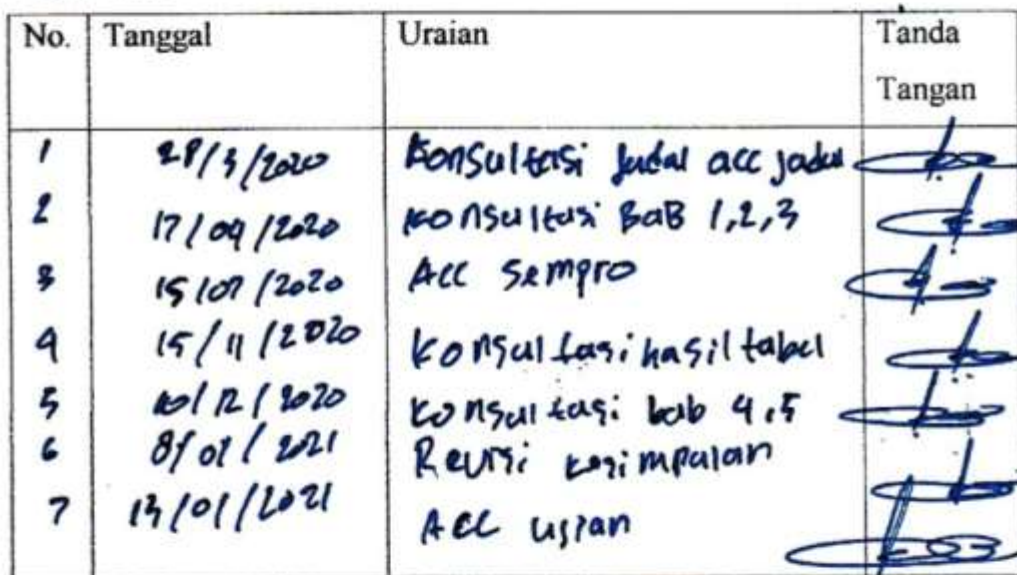 No. Tanggal Uraian Tanda Tangan
1 28/3/2020 Konsultasi Judul acc judul
2 17/04/2020 Konsultasi BaB 1,2,3
3 15/07/2020 Acc Sempro
4 15/11/2020 Konsultasi hasil tabel
5 10/12/2020 Konsultasi bab 4,5
6 8/01/2021 Revisi kesimpulan
7 13/01/2021 ACC ujian